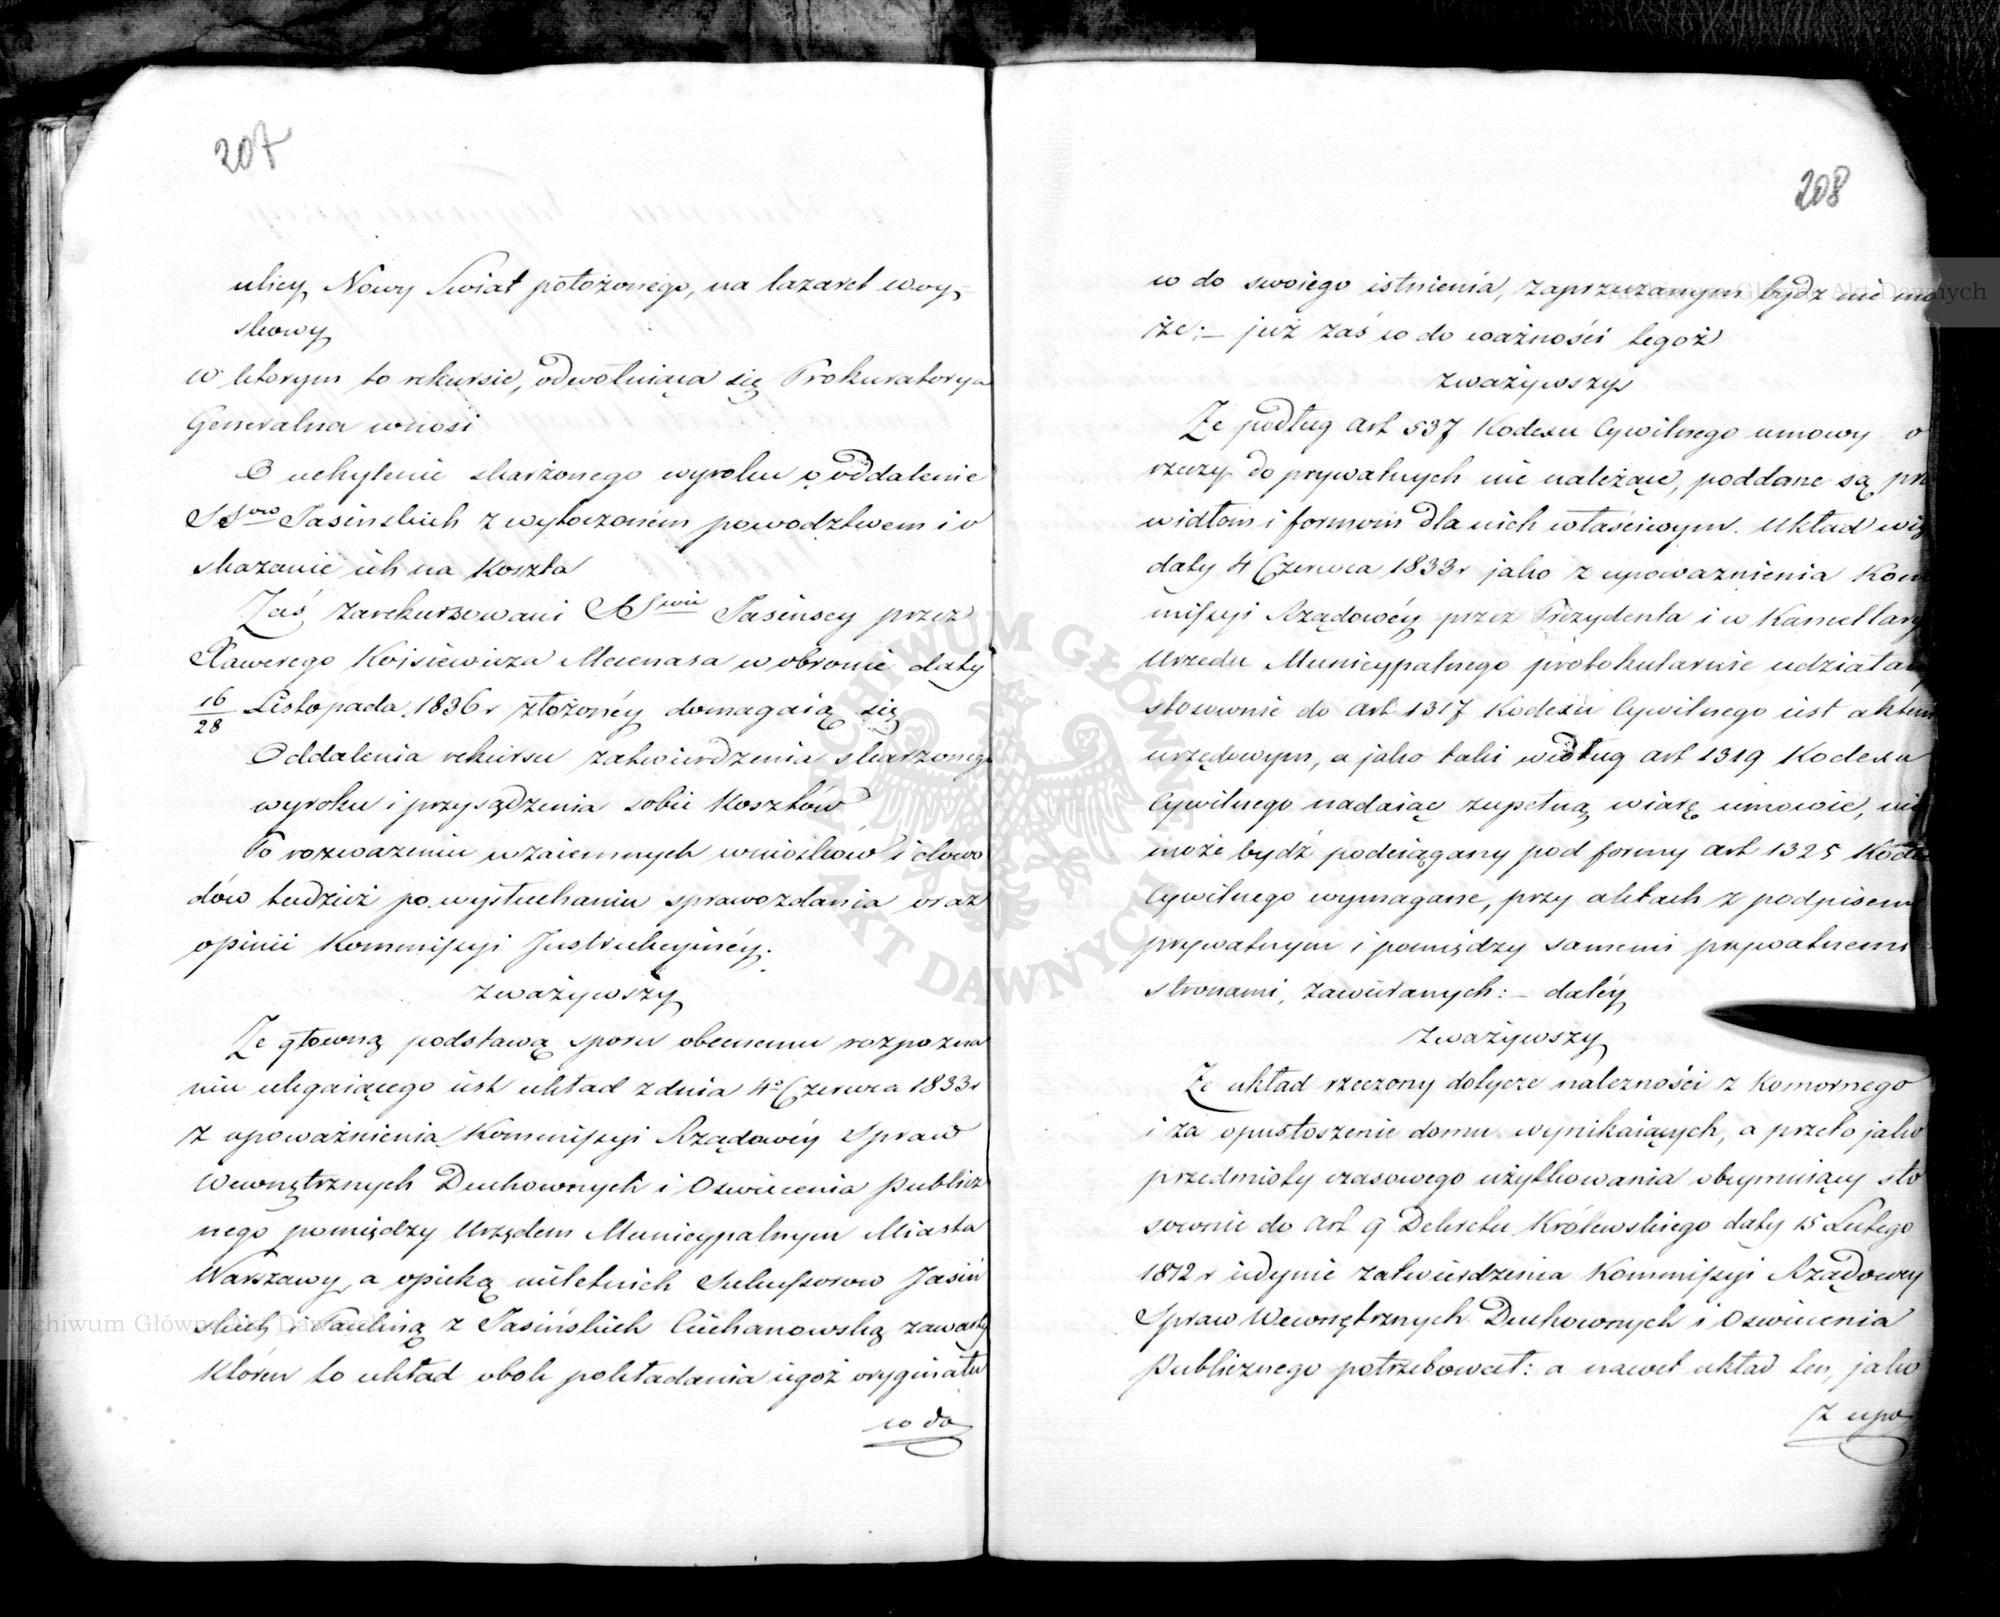 207
ulicy Nowy Swiat położonego, na lazaret woy-
skowy
w ktorym to rekursie, odwołuiąca się Prokuratorya
Generalna wnosi
O uchylenie skarżonego wyroku o oddalenie
SSrów Jasinskich z wytoczonem powodztwem i o
skazanie ich na koszta
Zaś zarekursowani SSwie Jasinscy przez
Xawerego Koisiewicza Mecenasa w obronie daty
16/28 Listopada 1836 r złożonéy domagaią się
Oddalenia rekursu zatwierdzenia skarzonego
wyroku i przysądzenia sobie kosztów
Po rozwazeniu wzaiemnych wniosków i dowo
dów tudzież po wysłuchaniu sprawozdania oraz
opinii Kommissyi Instrukcyinéy.
zważywszy
Ze główną podstawą sporu obecnemu rozpozna
niu ulegaiącego iest układ z dnia 4o Czerwca 1833 r
z upoważnienia Kommissyi Rządowéy Spraw
Wewnętrznych Duchownych i Oswiecenia Publicz
nego pomiędzy Urzędem Municypalnym Miasta
Warszawy, a opieką nieletnich Sukcessorow Jasiń
skich i Pauliną z Jasińskich Ciechanowską zawarty
któren to układ obok pokładania iegoż oryginału
co do
208
co do swoiego istnienia, zaprzeczanym bydz nie mo
że; – już zaś co do ważności tegoż
zważywszy
Ze podług art 537 Kodexu Cywilnego umowy o
rzeczy do prywatnych nie należące, poddane są pra
widłom i formom dla nich właściwym. Układ więc
daty 4 Czerwca 1833 r jako z upoważnienia Kom
missyi Rządowéy przez Prezydenta i w Kancellaryi
Urzedu Municypalnego protokularnie udziałany
stosownie do art 1317 Kodexu Cywilnego iest aktem
urzędowym, a jako taki według art 1319 Kodexu
Cywilnego nadaiąc zupełną wiarę umowie, nie
może bydź podciągany pod formy art 1325 Kodexu
Cywilnego wymagane, przy aktach z podpisem
prywatnym i pomiędzy samemi prywatnemi
stronami, zawieranych: – daléy
zważywszy
Ze układ rzeczony dotycze należności z komornego
i za opustoszenie domu wynikaiących, a przeto jako
przedmioty czasowego użytkowania obeymuiący sto
sownie do art 9 Dekretu Królewskiego daty 15 Lutego
1812 r iedynie zatwierdzenia Kommissyi Rządowey
Spraw Wewnętrznych Duchownych i Oswiecenia
Publicznego potrzebował: a nawet układ ten, jako
z upo
Archiwum Główne Akt Dawnych
Archiwum Główne Akt Dawnych
ARCHIWUM GŁÓWNE AKT DAWNYCH